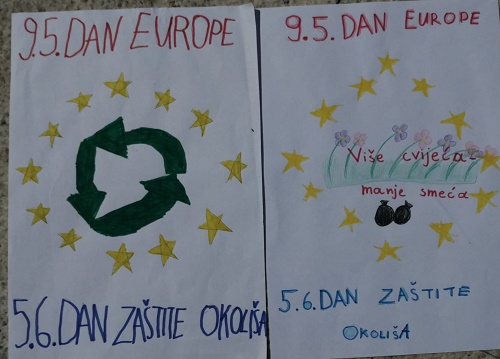 9.5. DAN EUROPE
5.6. DAN ZAŠTITE OKOLIŠA
9.5. DAN EUROPE
Više cvijeća
manje smeća
5.6. DAN ZAŠTITE
OKOLIŠA